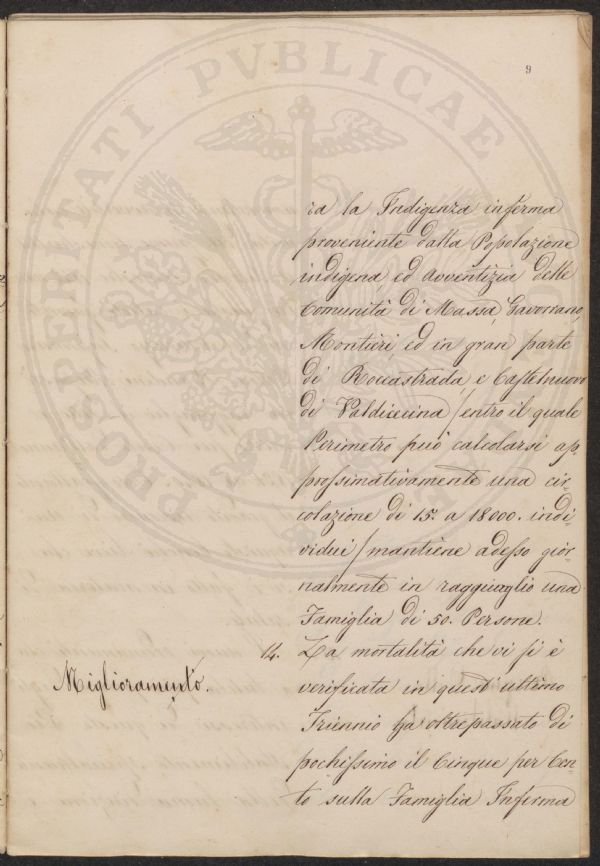 PROSPERITATI PVBLICAE
9
ra la Indigenza inferma
proveniente dalla Popolazione
indigena, ed avventizia delle
Comunità di Massa, Gavorrano,
Montieri, ed in gran parte
di Roccastrada, e Castelnuovo
di Valdicecina / entro il quale
Perimetro può calcolarsi ap-
prossimativamente una cir-
colazione di 15. a 18000. indi-
vidui / mantiene adesso gior-
nalmente in ragguaglio una
Famiglia di 50. Persone.
Miglioramento.
14. La mortalità che vi si è
verificata in quest'ultimo
Triennio ha oltrepassato di
pochissimo il Cinque per Cen-
to sulla Famiglia Inferma